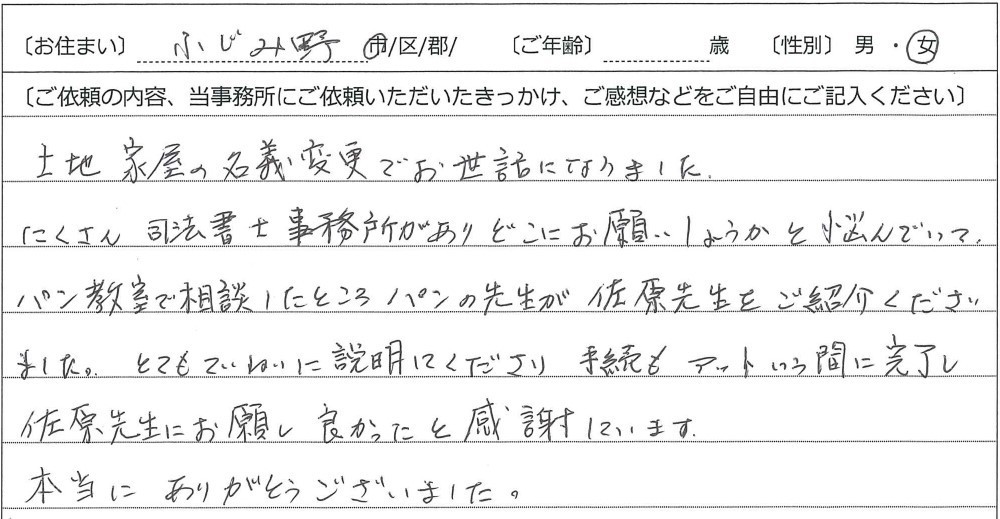 〔お住まい〕 ふじみ野 市/区/郡/ 〔ご年齢〕 歳 〔性別〕 男 ・ 女
〔ご依頼の内容、当事務所にご依頼いただいたきっかけ、ご感想などをご自由にご記入ください〕
土地 家屋の名義変更でお世話になりました。
たくさん 司法書士事務所がありどこにお願いしようかと悩んでいて、
パン教室で相談したところ パンの先生が 佐原先生をご紹介くださ
ました。とてもていねいに説明してくださり 手続も アットいう間に完了し
佐原先生にお願いし 良かったと感謝しています。
本当に ありがとうございました。